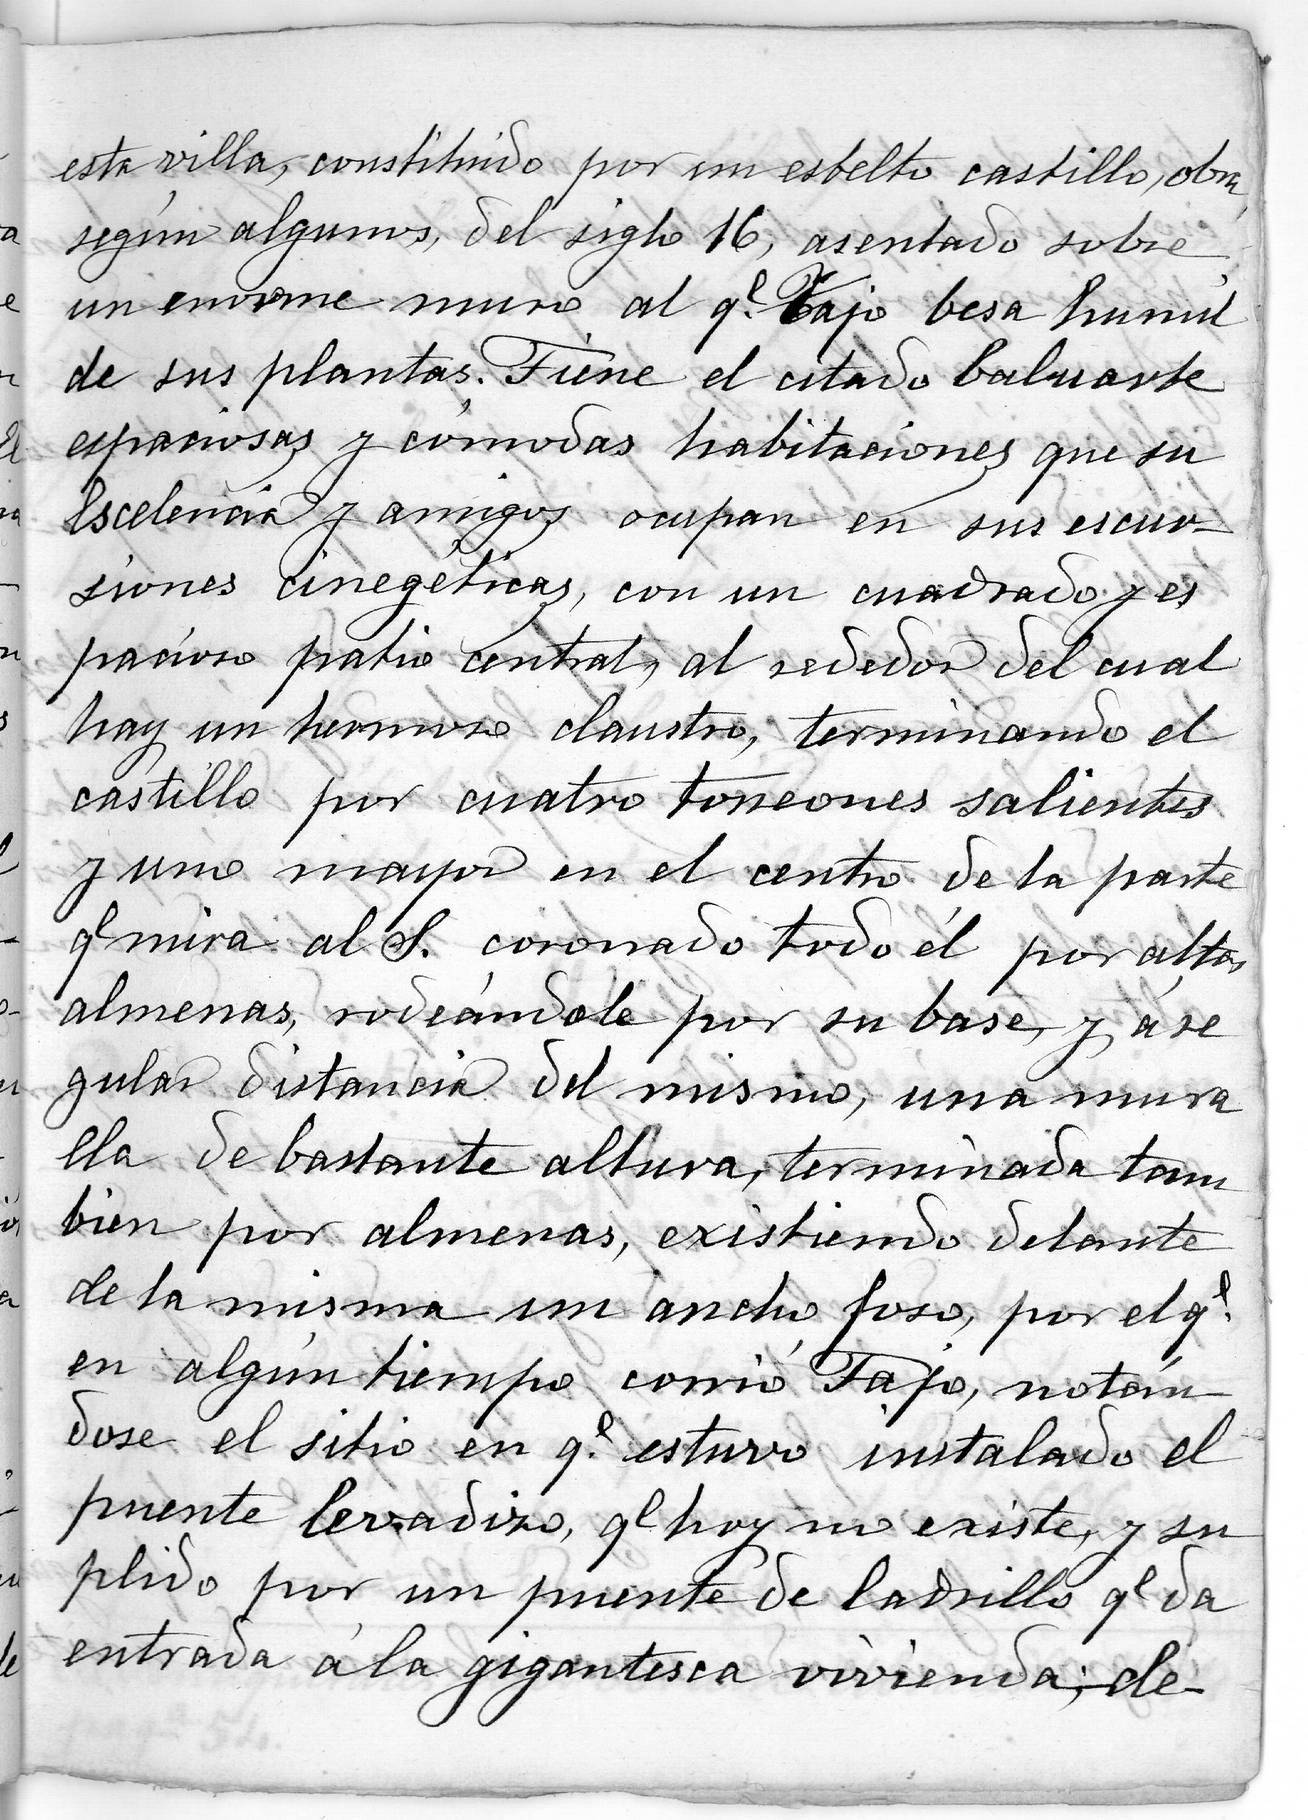 esta villa, constituido por un esbelto castillo, obra,
según algunos, del siglo 16, asentado sobre
un enorme muro al q.e Tajo besa humil
de sus plantas. Tiene el citado baluarte
espaciosas y cómodas habitaciones que su
Escelencia y amigos ocupan en sus escur-
siones cinegéticas, con un cuadrado y es
pacioso patio central, al rededor del cual
hay un hermoso claustro, terminando el
castillo por cuatro torreones salientes
y uno mayor en el centro de la parte
qe mira al S. coronado todo él por altas
almenas, rodeándole por su base, y á re
gular distancia del mismo, una mura
lla de bastante altura, terminada tam
bien por almenas, existiendo delante
de la misma un ancho foso, por el q.e
en algún tiempo corrió Tajo, notán-
dose el sitio en q.e estuvo instalado el
puente levadizo, qe hoy no existe, y su
plido por un puente de ladrillo qe da
entrada á la gigantesca vivienda; de-